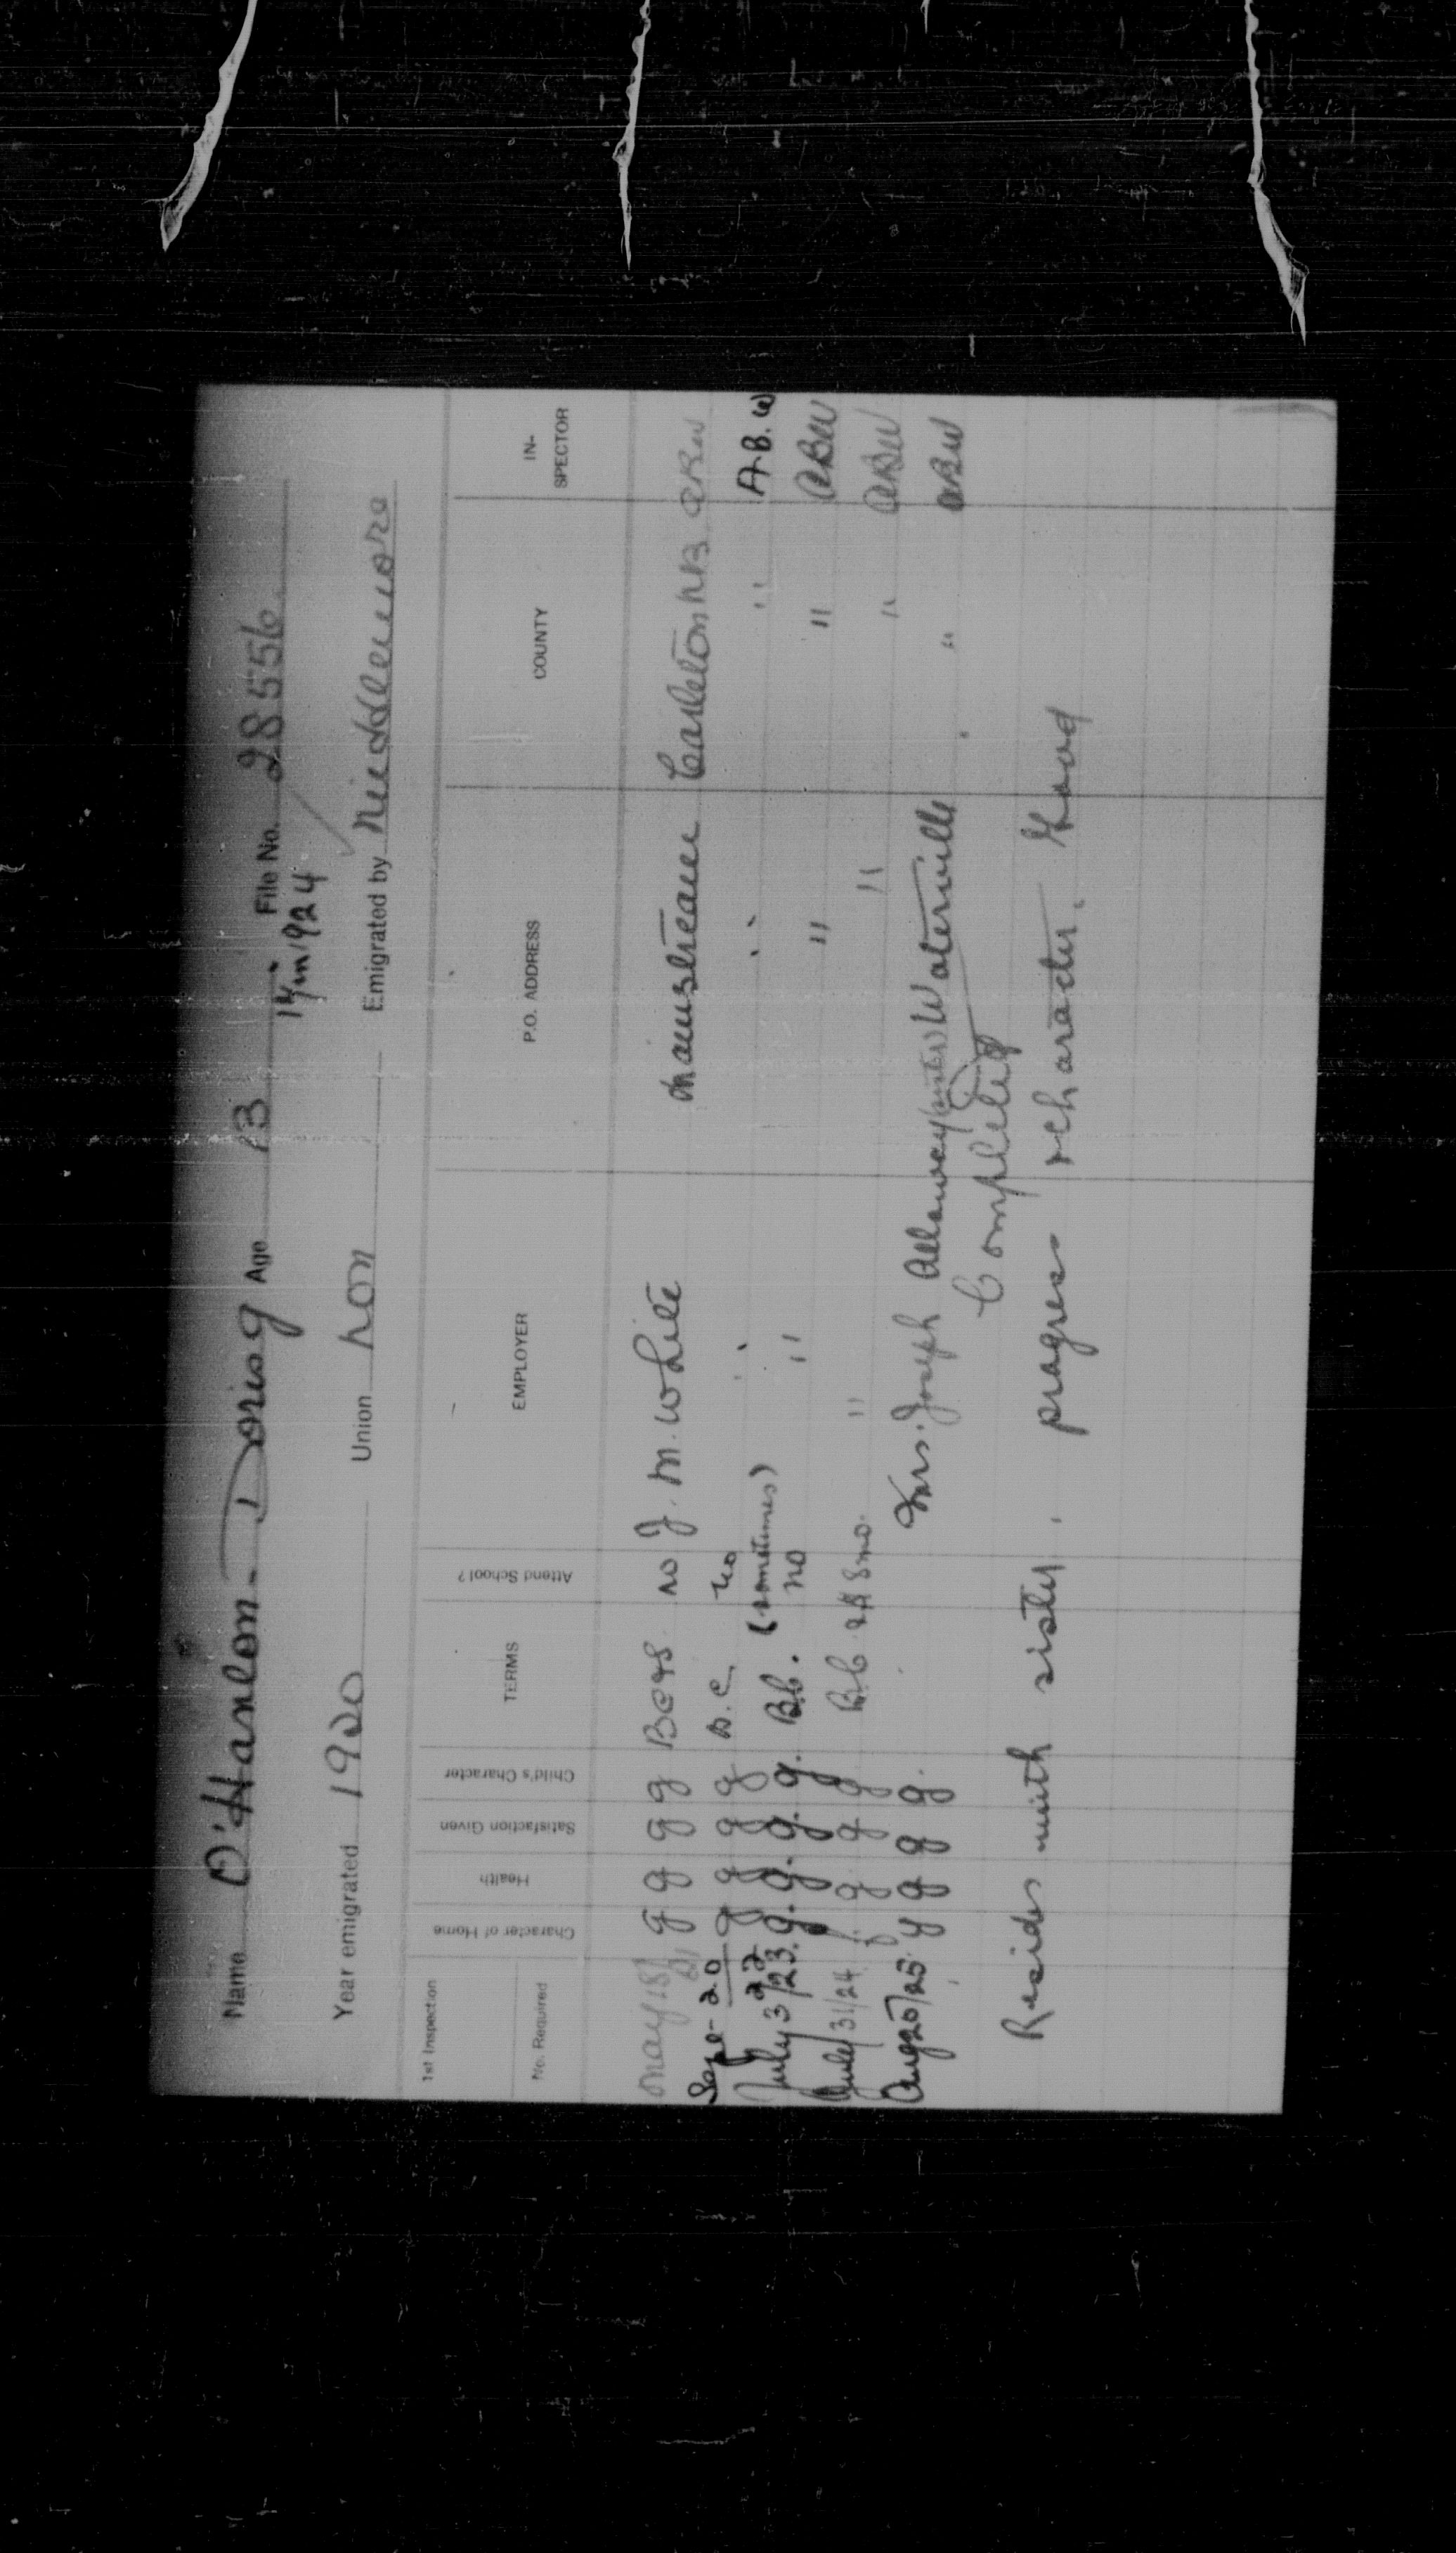 Name O'Hanlon - Doris G Age 13 File No. 28556
14 in 1924
Year emigrated 1920 Union non Emigrated by Middlemore
1st Inspection
No. Required
Character of Home Health Satisfaction Given Child's Character TERMS Attend School? EMPLOYER P.O. ADDRESS COUNTY IN-SPECTOR
May 18/21 g g g g BC&S. no J. M. White Mainstream Carleton N.B. ABW
Sept - 20 22 g g g g B.C. no " " " A.B.W
(sometimes)
July 3/23. g. g. g. g. B.b. no " " " ABW
July 31/24 g g g B.b. 8 mo. " " " ABW
Aug 20/25. g g g g. Mrs. Joseph Allaway (sister) Waterville " ABW
Completed
Resides with sister, progress & character. Good